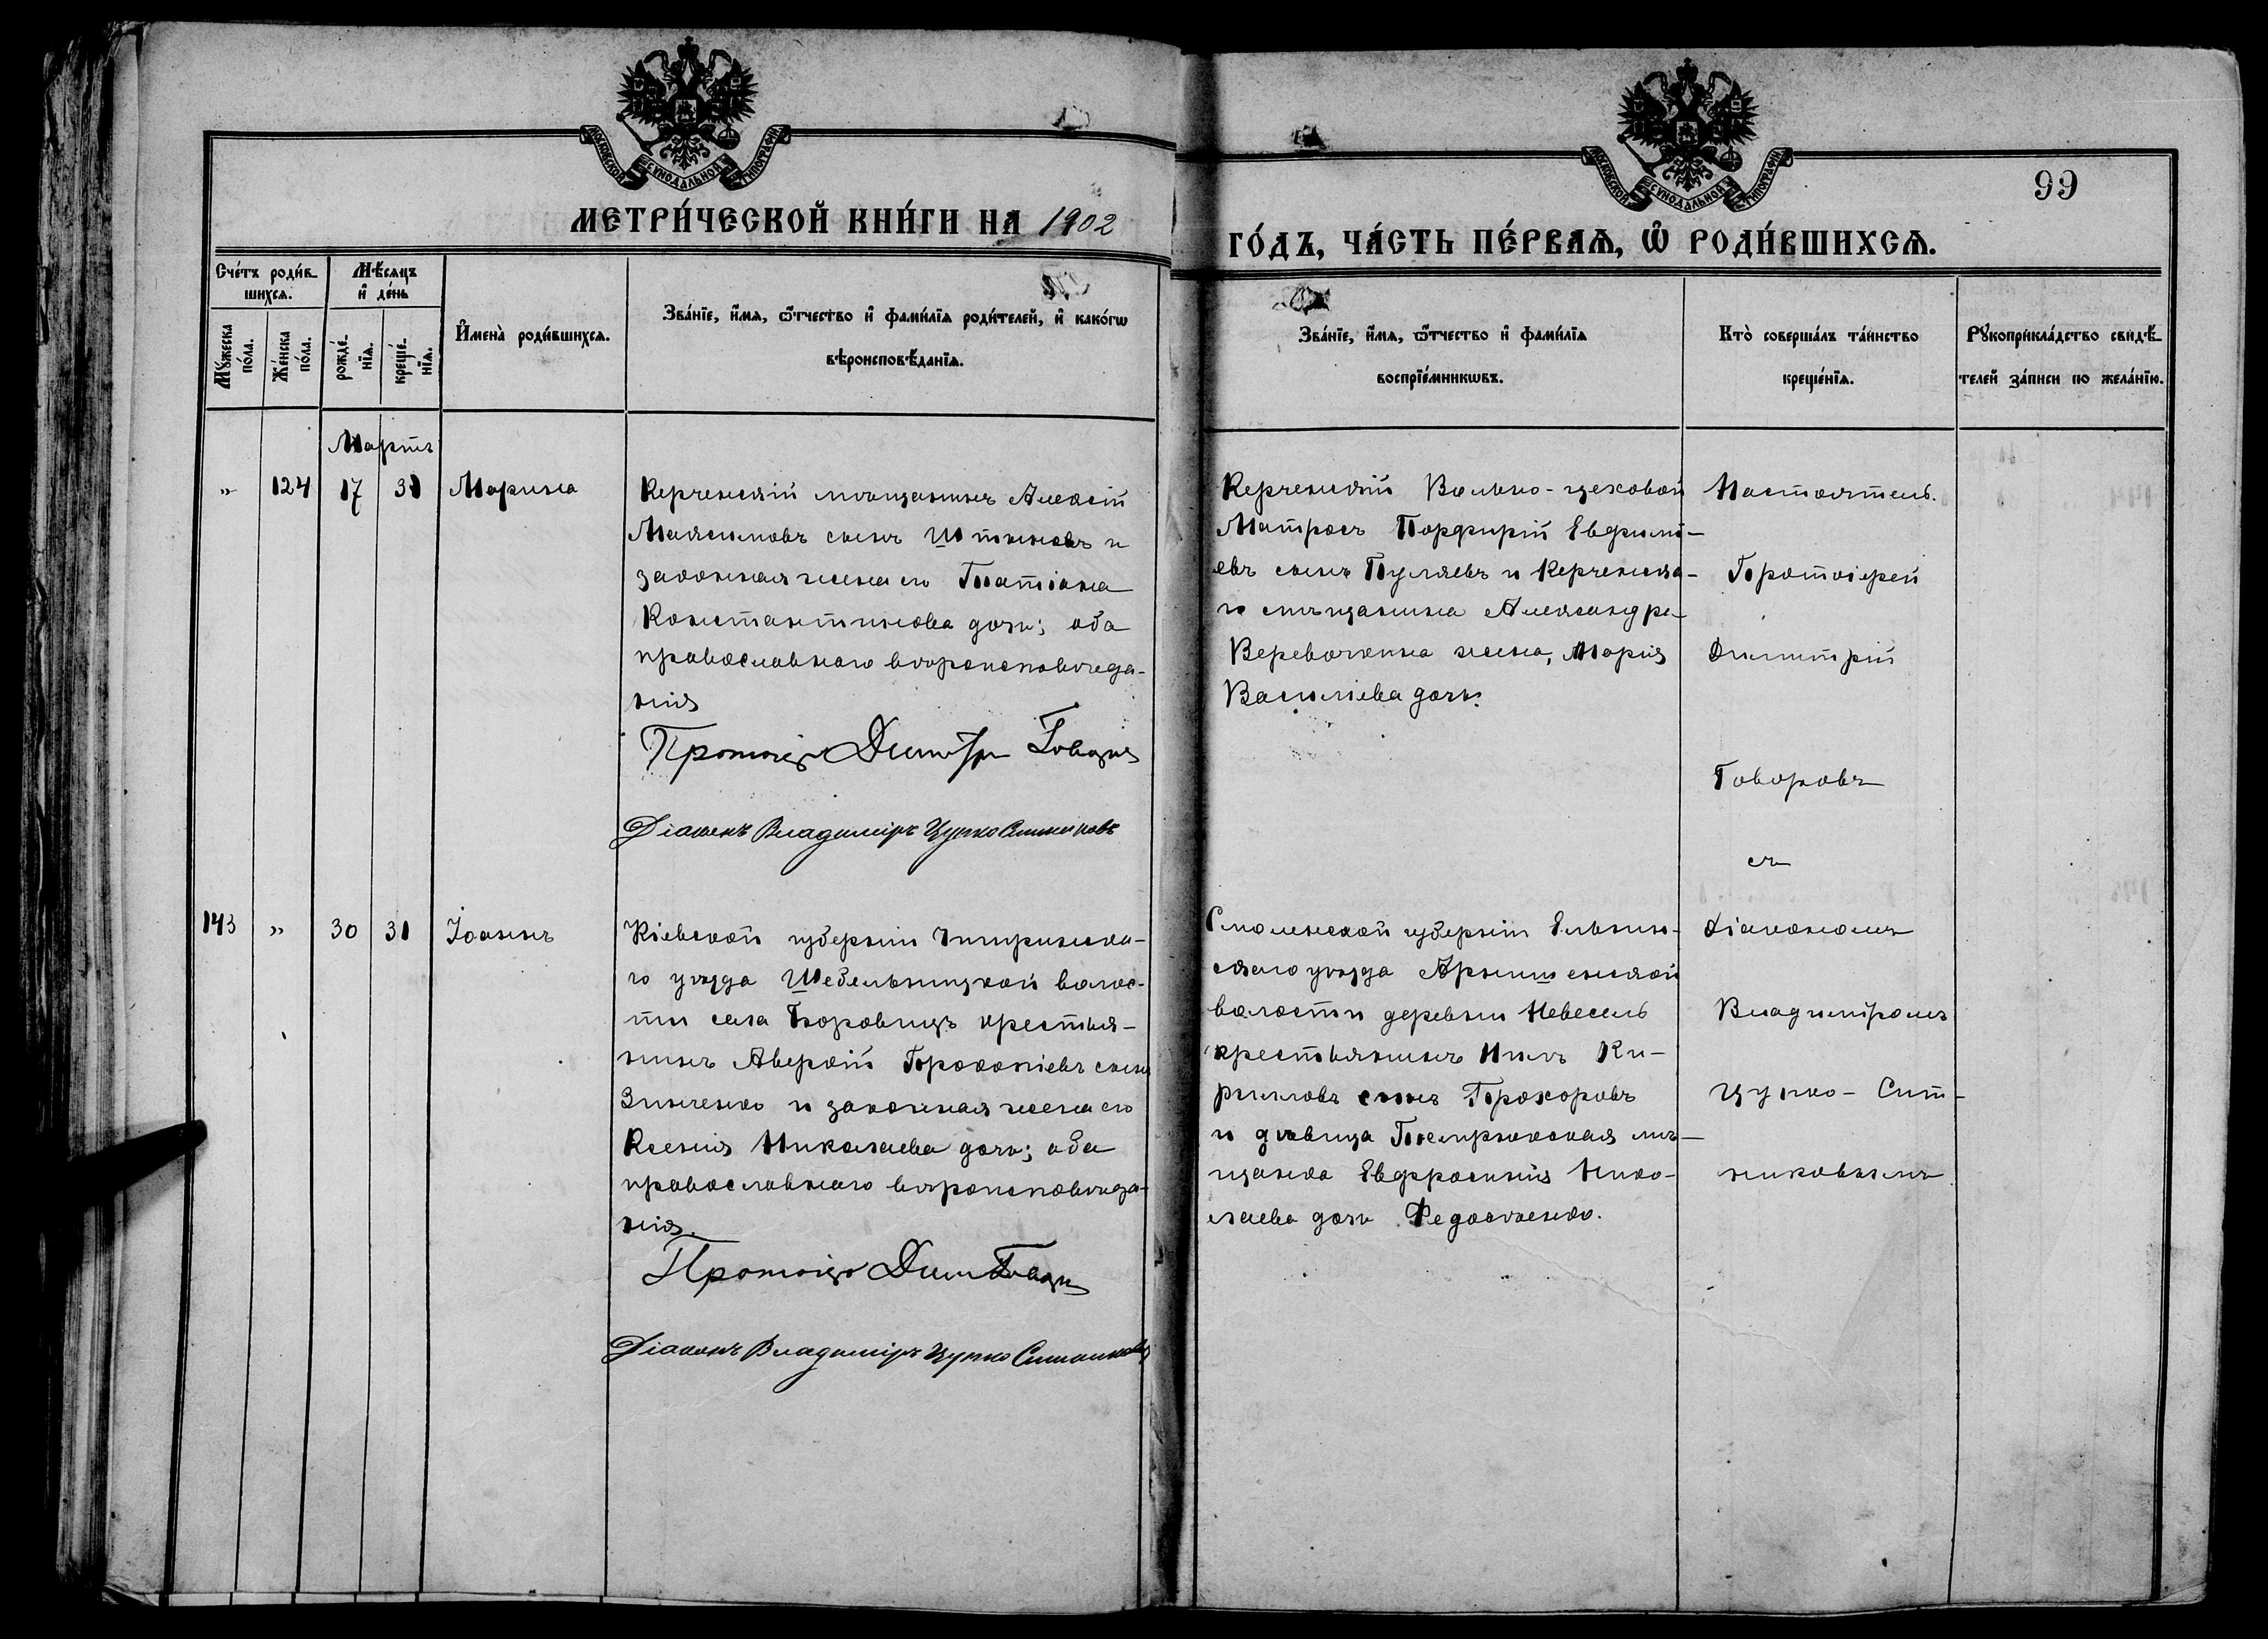 МОСКОВСКОЙ СѴНОДАЛЬНОЙ ТИПОГРАФІИ
МОСКОВСКОЙ СѴНОДАЛЬНОЙ ТИПОГРАФІИ
99
МЕТРИ́ЧЕСКОЙ КНИ́ГИ НА 1902
ГО́ДЪ, ЧА́СТЬ ПЕ́РВАѦ, Ѡ҆ РОДИ́ВШИХСѦ.
Сче́тъ роди́в-
шихсѧ.
Мꙋ́жеска
по́ла.
Же́нска
по́ла.
Мѣ́сѧцъ
и҆ де́нь
рожде́-
нїѧ.
креще́-
нїѧ.
И҆мена̀ роди́вшихсѧ.
Зва́нїе, и҆́мѧ, ѻ҆́тчество и҆ фами́лїѧ роди́телей, и҆ како́гѡ
вѣроисповѣ́данїѧ.
Зва́нїе, и҆́мѧ, ѻ҆́тчество и҆ фами́лїѧ
воспрїе́мникѡвъ.
Кто̀ соверша́лъ та́инство
креще́нїѧ.
Рꙋкоприкла́дство свидѣ́-
телей за́писи по жела́нїю.
Мартъ
" 124 17 31 Марина
Керченскій мѣщанинъ Алексій
Максимовъ сынъ и
законная жена его Татіана
Константинова дочь; оба
православнаго вѣроисповѣда-
нія
Протоіер Димитр Говоров
Діаконъ Владиміръ Цупко Ситниковъ
Керченскій Вольно-цеховой
Матросъ Порфирій Евфимі-
евъ сынъ Пуляевъ и Керченска-
го мѣщанина Александра
Веревочкина жена, Марія
Васильева дочь.
Настоятель
Протоіерей
Димитрій
Говоровъ
съ
143 " 30 31 Іоаннъ
Кіевской губерніи Чигиринска-
го уѣзда Шебельницкой волос-
ти села Боровицъ крестья-
нинъ Аверкій Прокопіевъ сынъ
Зинченко и законная жена его
Ксенія Николаева дочь; оба
православнаго вѣроисповѣда-
нія.
Протоіер Дим Говоров
Діаконъ Владиміръ Цупко Ситниковъ
Смоленской губерніи Ельнин-
скаго уѣзда
волости деревни Невесель
крестьянинъ Нилъ Ки-
рилловъ сынъ Прохоровъ
и дѣвица Темрюкская мѣ-
щанка Евфросинія Нико-
лаева дочь Федосѣенко.
Діакономъ
Владиміромъ
Цупко-Сит-
никовымъ